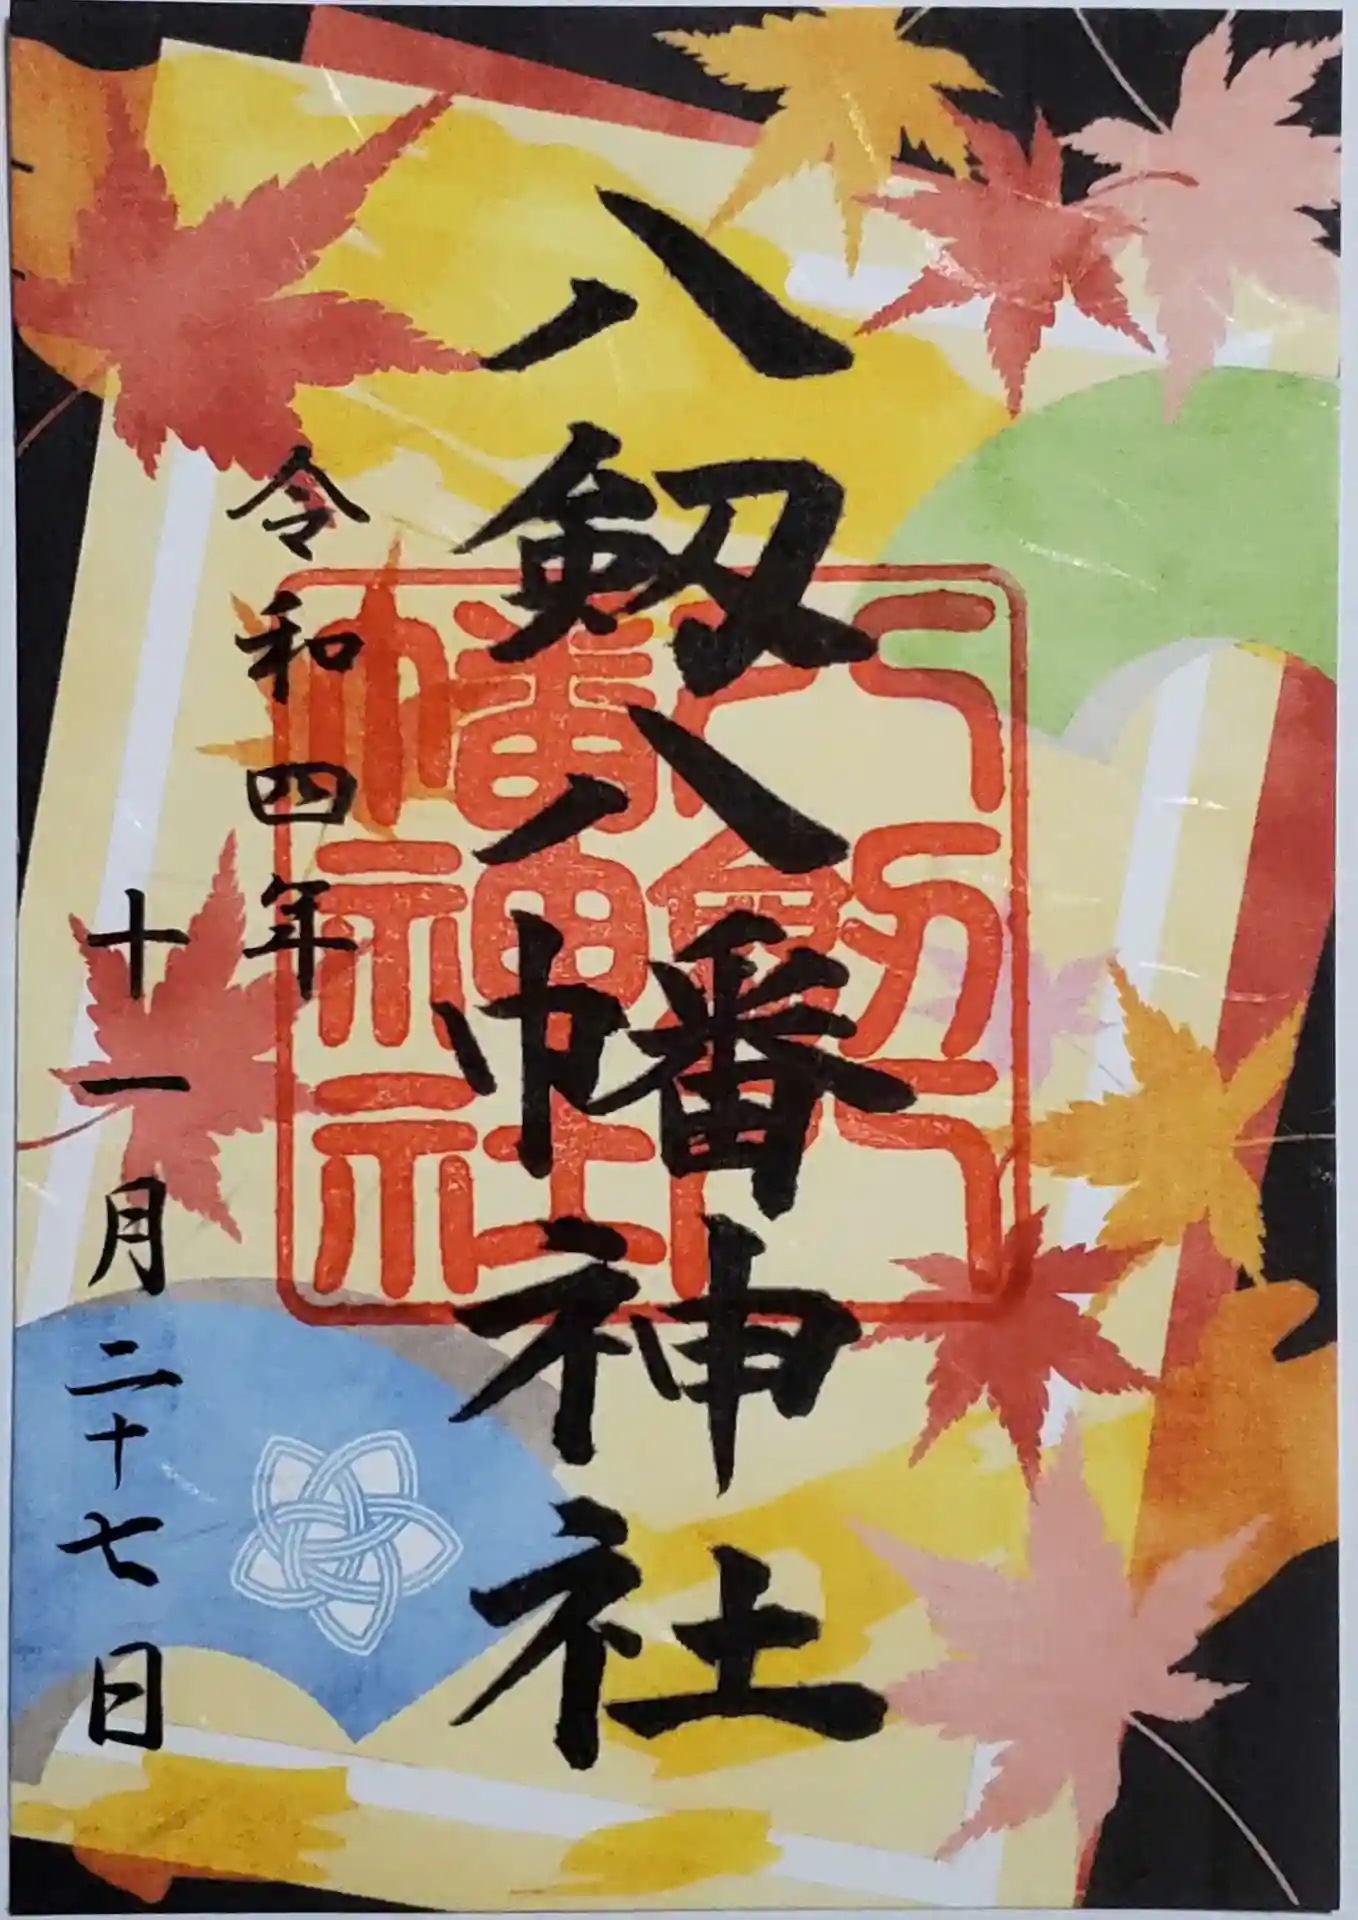 八剱八幡神社
令和四年
十一月二十七日
八剱八
幡神社